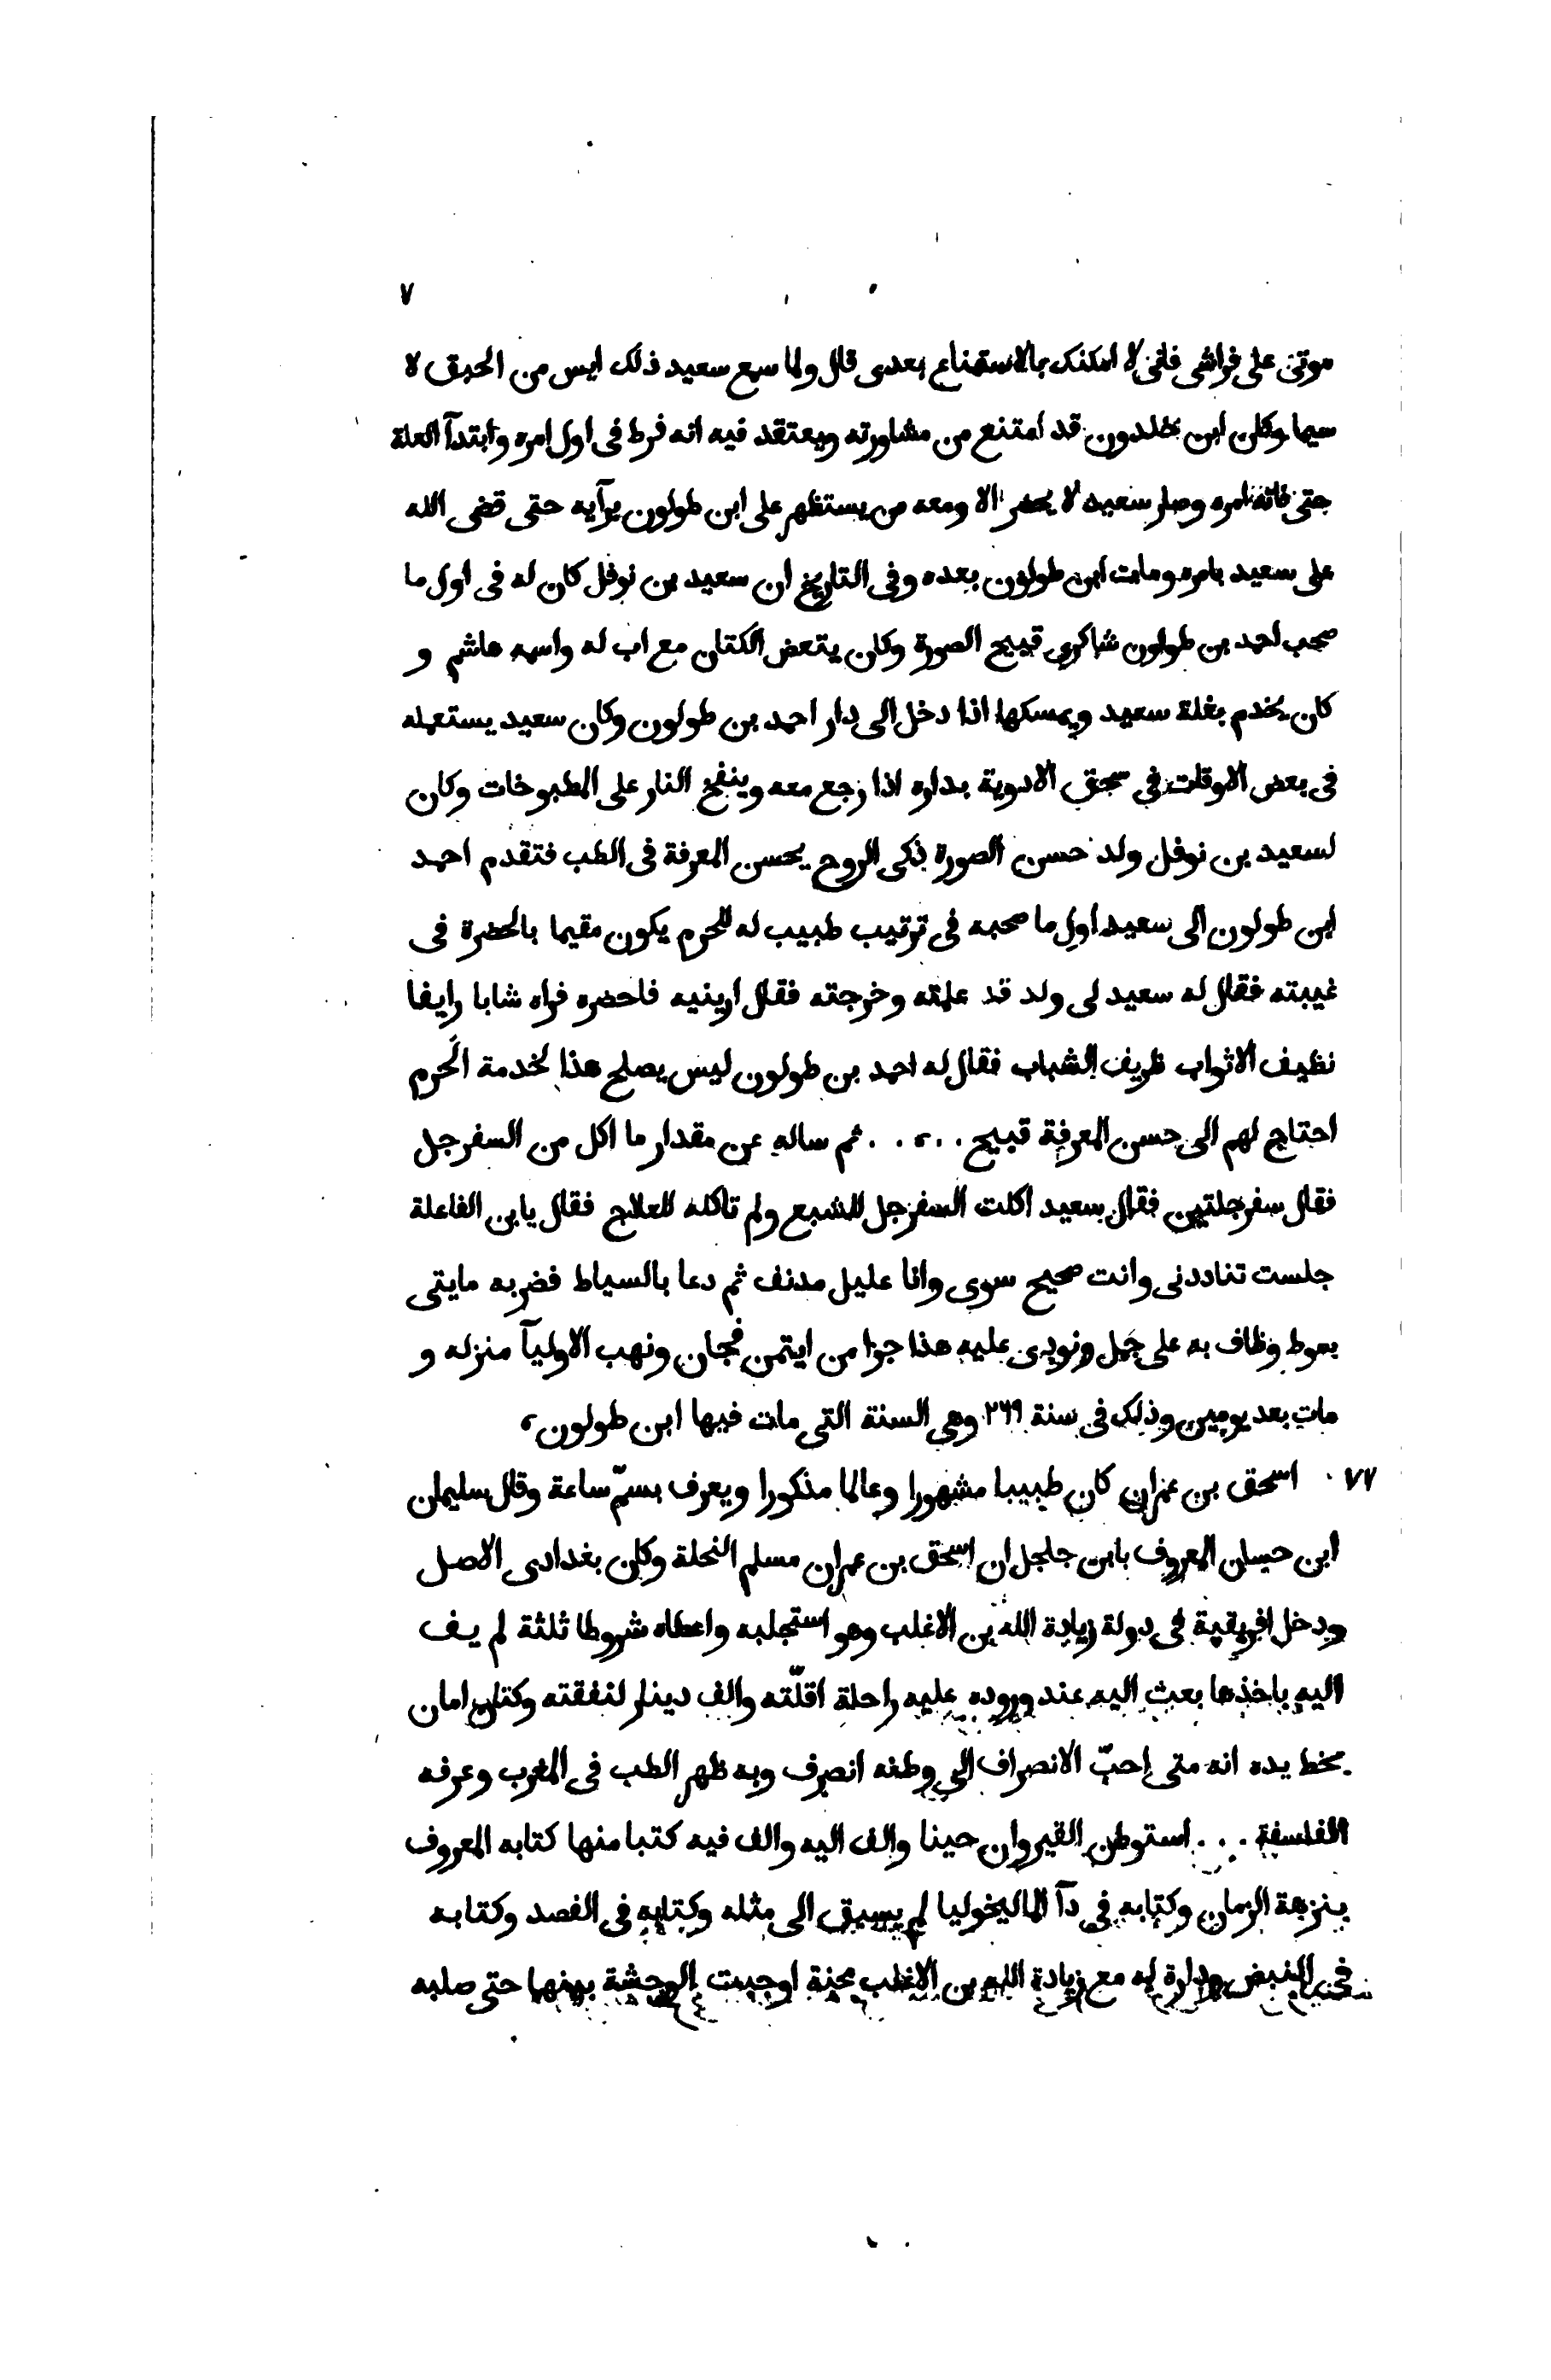 ٧
موتى على فراشى فانى لا امكنك بالاستمتاع بعدى قال ولما سمع سعيد ذلك ايس من الحيق لا
سيما وكان ابن طولون قد امتنع من مشاورته ويعتقد فيه انه فرط فى اول امره وابتدآ العلة
حتى فاته امره وصار سعيد لا يحضر الا ومعه من يستظهر على ابن طولون برآيه حتى قضى الله
على سعيد بامره ومات ابن طولون بعده وفى التاريخ ان سعيد بن نوفل كان له فى اول ما
صحب احمد بن طولون شاكرى قبيح الصورة وكان يتعض الكتان مع اب له واسمه هاشم و
كان يخدم بغلة سعيد ويمسكها اذا دخل الى دار احمد بن طولون وكان سعيد يستعمله
فى بعض الاوقات فى سحق الادوية بداره اذا رجع معه وينفخ النار على المطبوخات وكان
لسعيد بن نوفل ولد حسن الصورة ذكى الروح يحسن المعرفة فى الطب فتقدم احمد
ابن طولون الى سعيد اول ما صحبه فى ترتيب طبيب له للحرم يكون مقيما بالحضرة فى
غيبته فقال له سعيد لى ولد قد علمته وخرجته فقال ارينيه فاحضره فراه شابا رايفا
نظيف الاثواب ظريف الشباب فقال له احمد بن طولون ليس يصلح هذا لخدمة الحرم
احتاج لهم الى حسن المعرفة قبيح ..... ثم ساله عن مقدار ما اكل من السفرجل
فقال سفرجلتين فقال سعيد اكلت السفرجل للشبع ولم تاكله للعلاج فقال يابن الفاعلة
جلست تناددنى وانت صحيح سوى وانا عليل مدنف ثم دعا بالسياط فضربه مايتى
بموط وظاف به على جمل ونودى عليه هذا جزا من ايتمن فخان ونهب الاوليآ منزله و
مات بعد يومين وذلك فى سنة ٢٦٩ وهى السنة التى مات فيها ابن طولون،
٧٧ . اسحق بن عمران كان طبيبا مشهورا وعالما مذكورا ويعرف بسمّ ساعة وقال سليمان
ابن حسان المعروف بابن جلجل ان اسحق بن عمران مسلم النحلة وكان بغدادى الاصل
ودخل افريقية فى دولة زيادة الله بن الاغلب وهو استجلبه واعطاه شروطا ثلثة لم يف
اليه باخذها بعث اليه عند وروده عليه راحلة اقلّته والف دينار لنفقته وكتاب امان
بخط يده انه متى احبّ الانصراف الى وطنه انصرف وبه ظهر الطب فى المغرب وعرفه
الفلسفة ... استوطن القيروان حينا والف اليه والف فيه كتبا منها كتابه المعروف
بنزهة الزمان وكتابه فى دآ الماليخوليا لم يسبق الى مثله وكتابه فى الفصد وكتابه
فى النبض ودارة له مع زيادة الله بن الاغلب محنة اوجبت الوحشة بينهما حتى صلبه